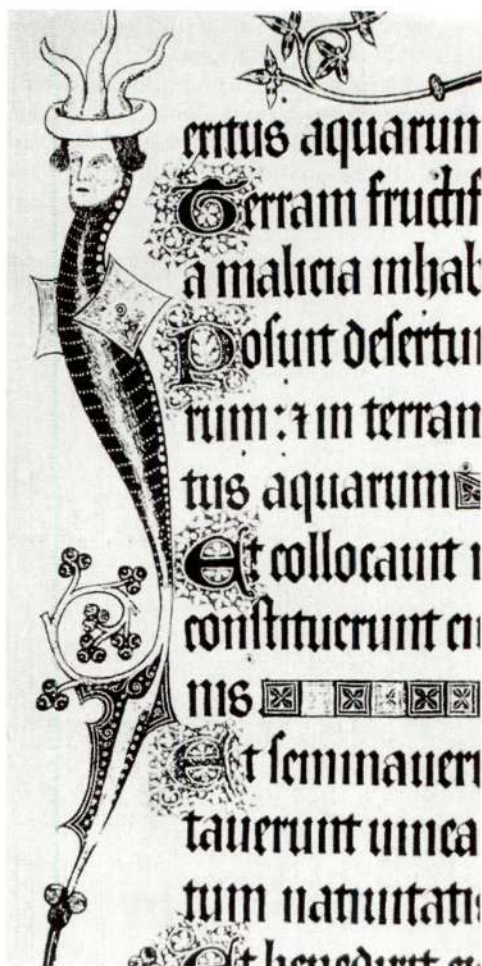 eritus aquarum
Terram fructif
a malicia inhab
Posuit desertum
rum: ⁊ in terram
tus aquarum
Et collocauit
constituerunt ci
nis.
Et seminaueru
tauerunt uinea
tum natiuitatis
Et benedixit ei